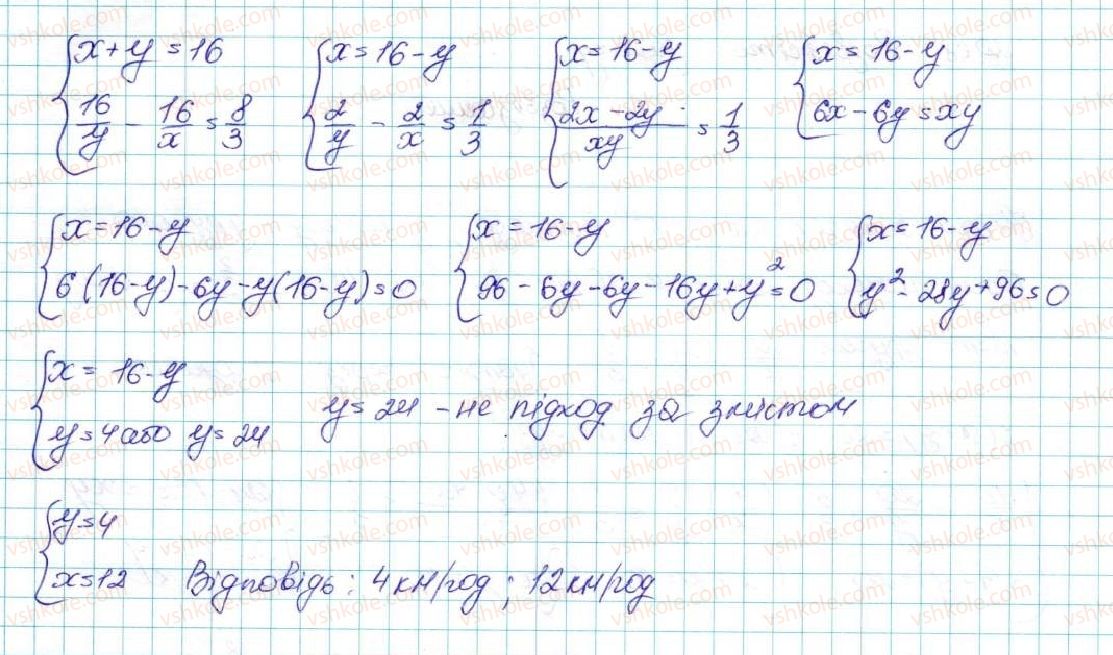 {x+y=16 {x=16-y {x=16-y {x=16-y
16/y - 16/x = 8/3 2/y - 2/x = 1/3 (2x-2y)/xy = 1/3 6x-6y=xy
{x=16-y {x=16-y {x=16-y
6(16-y)-6y-y(16-y)=0 96-6y-6y-16y+y²=0 y²-28y+96=0
{x=16-y
y=4 або y=24 y=24 - не підход за змістом
{y=4
x=12 Відповідь: 4км/год; 12км/год
vshkole.com